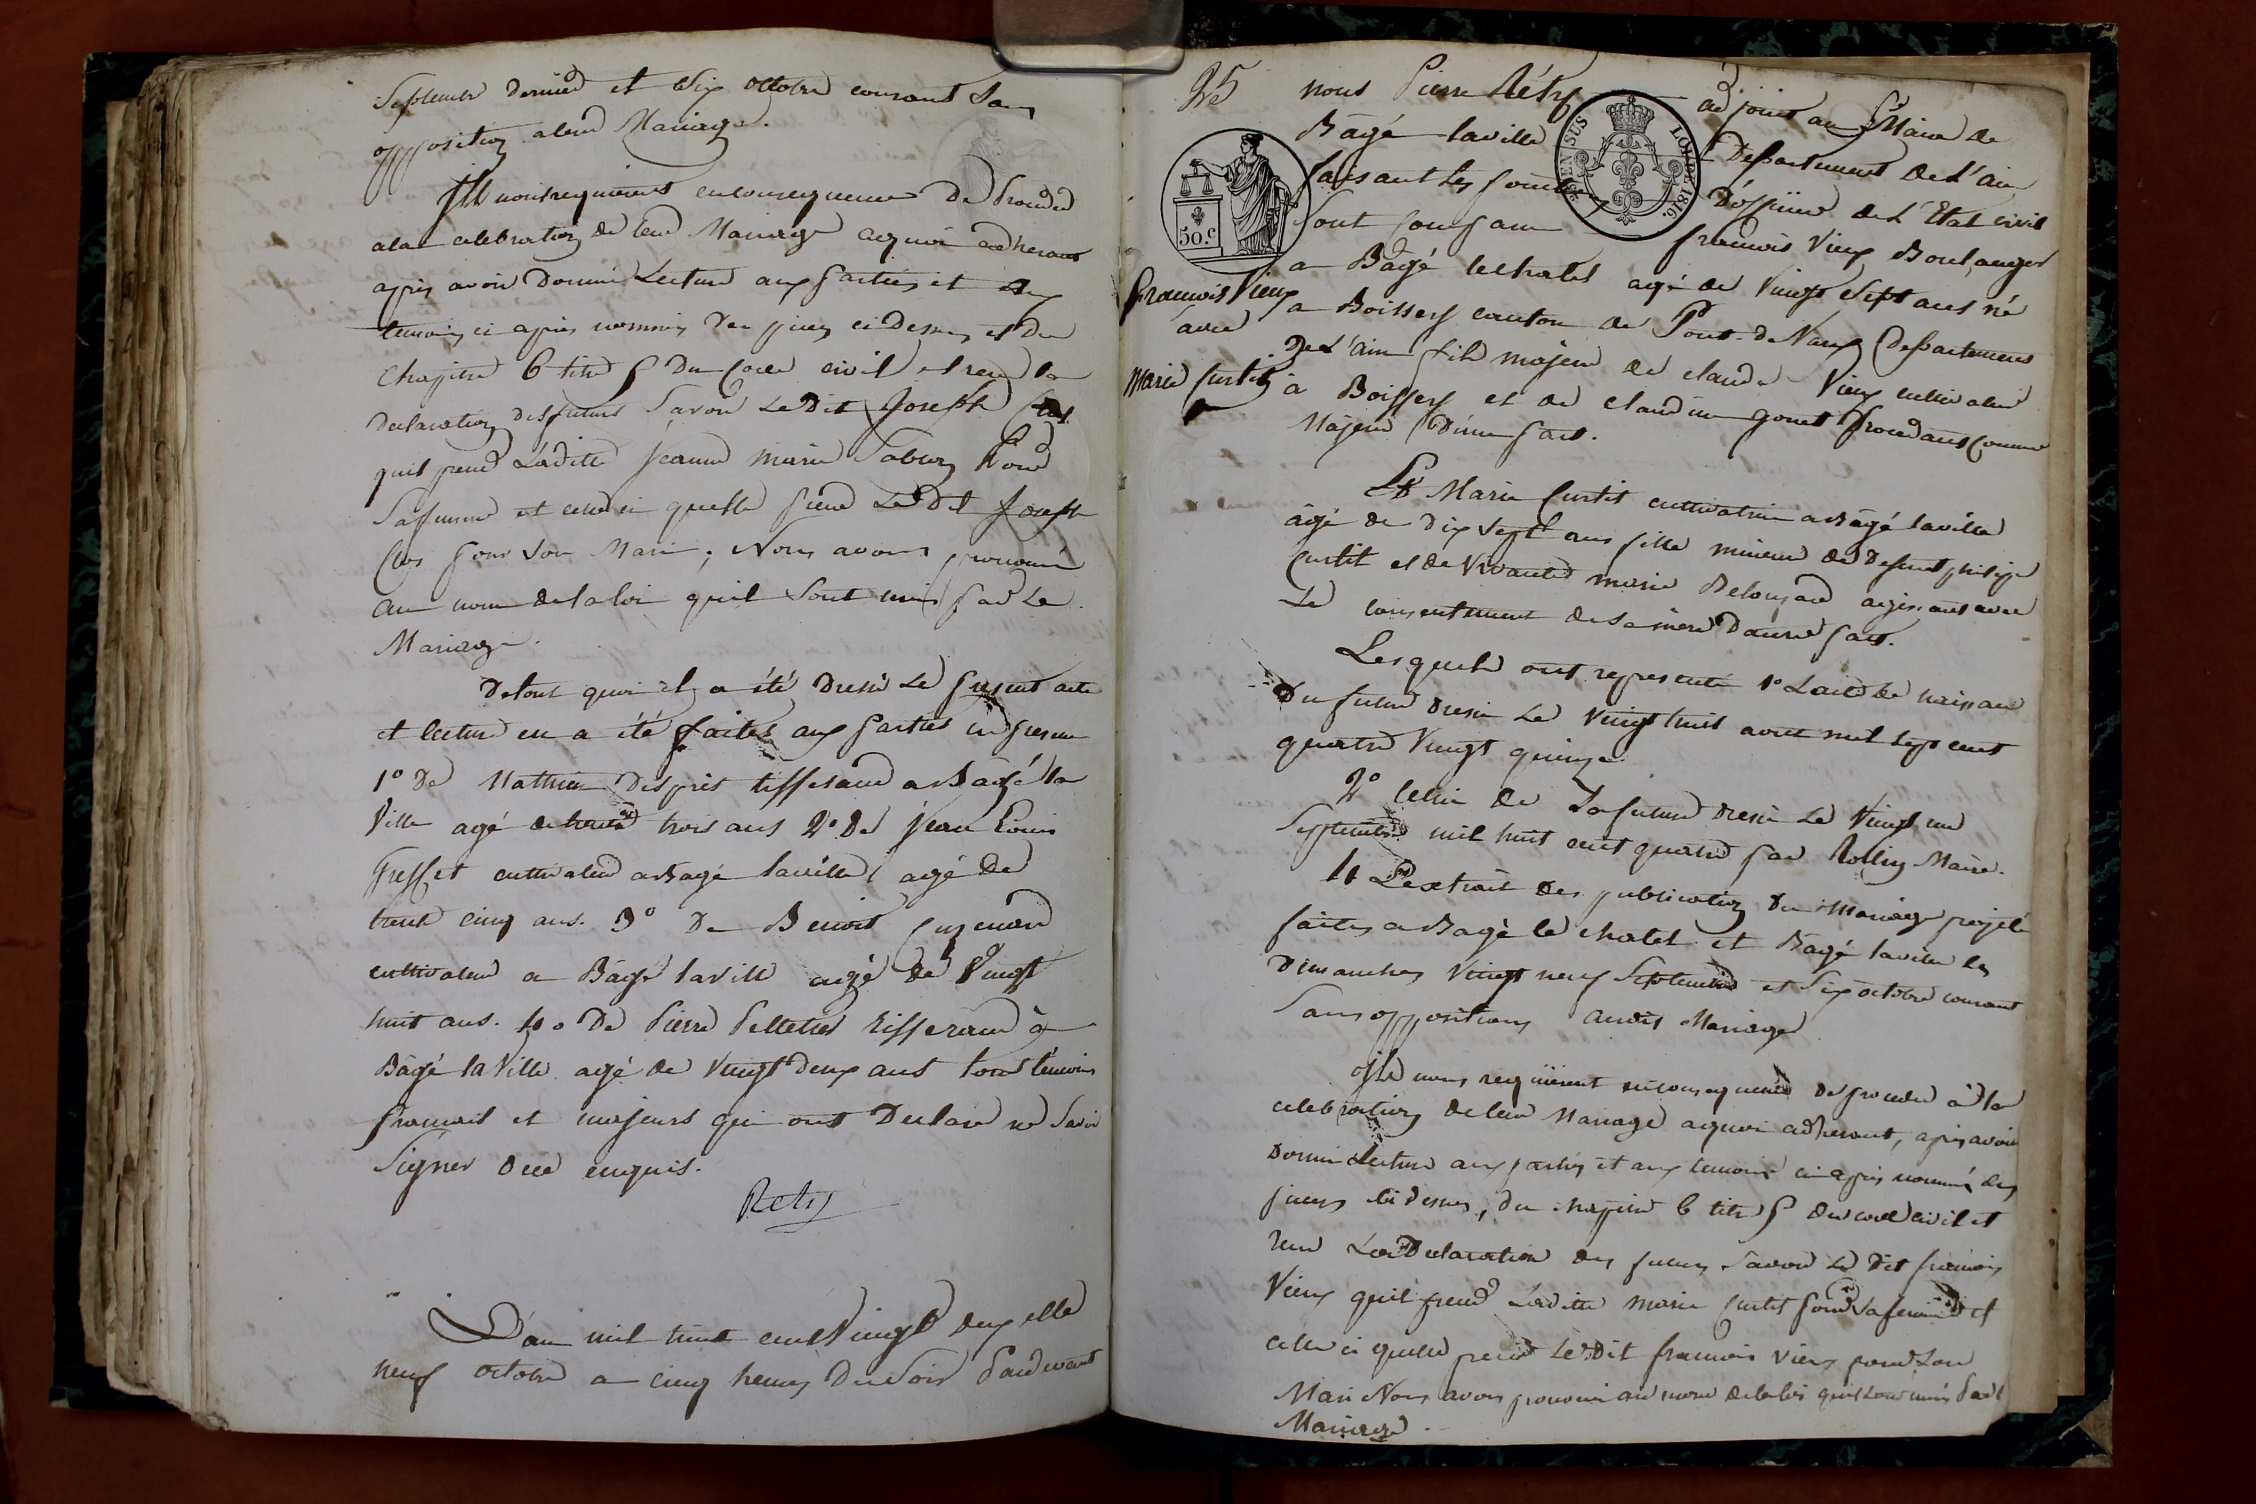 Septembre dernier et Six octobre courant Sans
opposition aleur Mariage.
Ils nous requierent en consequence De Proceder
ala celebration de leur Mariage aquoi adherant
après avoir Donné Lecture aux parties et aux
temoins ci après nommés Des pieces ci Dessus et Du
Chapitre 6 titre 5 Du Code civil et reçu la
Declaration des futurs Savoir Le Dit Joseph Clos
quil prend Laditte Jeanne Marie Pour
Sa femme et celle ci quelle prend Le Dit Joseph
Clos pour Son Mari ; Nous avons prononcé
au nom de la loi quil Sont unis par Le
Mariage.
De tout quoi il a été Dressé Le present acte
et lecture en a été faites aux parties en presence
1° De Mathieu Desprès tisserand a Bâgé la
Ville agé de trois ans 2° De Jean Louis
cultivateur a Bagé laville agé De
trente cinq ans. 3° De Benoit
cultivateur a Bâgé laville agé De Vingt
huit ans. 4° De Pierre Pelletier tisserand à
Bâgé la Ville agé de Vingt Deux ans tous témoins
francais et majeurs qui ont Declaré ne Savoir
Signer De ce enquis.
Rety
L'an mil huit cent Vingt deux et le
neuf octobre a cinq heures Du Soir Pardevant
35 nous Pierre Réty adjoint au Sr Maire de
Bâgé laville Departement De L'ain
faisant les fonctions D'officier de L'Etat civil
Sont comparu francois Vieux Boulanger
a Bâgé lechatel agé de Vingt Sept ans né
francois Vieux
avec
Marie Curtil
a Boissey canton de Pont-de-Vaux Departement
De L'ain fils majeur de claude Vieux cultivateur
à Boissey et de claudine gonet procedant comme
Majeur D'une part.
Et Marie Curtil cultivatrice a Bâgé laville
âgé de Dix Sept ans fille mineure de Defunt philipe
Curtil et de Vivante marie Belouzard agissant avec
Le consentement de Sa mère D'autre part.
Lesquels ont representé 1° Lacte de naissance
Du futur dressé Le Vingt huit aout mil Sept cent
quatre Vingt quinze.
2° Celui de La future dressé Le Vingt un
Septembre mil huit cent quatre par Rollin Maire.
Et L'extrait Des publications Du Mariage projeté
faites a Bagé le chatel et Bâgé laville les
Dimanches Vingt neuf Septembre et Six octobre courant
Sans oppositions audit Mariage
Ils nous requièrent en consequence De proceder à la
celebration de leur Mariage aquoi adherant, après avoir
Donné Lecture aux parties et aux temoins ci après nommés des
pieces ci dessus, du chapitre 6 titre 5 du code civil et
reçu La Declaration des futurs Savoir Le Dit francois
Vieux quil prend Laditte marie Curtil pour Sa femme et
celle ci quelle prend Le Dit francois Vieux pour Son
Mari Nous avons prononcé au nom de la loi quil Sont unis Par le
Mariage.
50.c
EN SUS
LOI DE 1816.